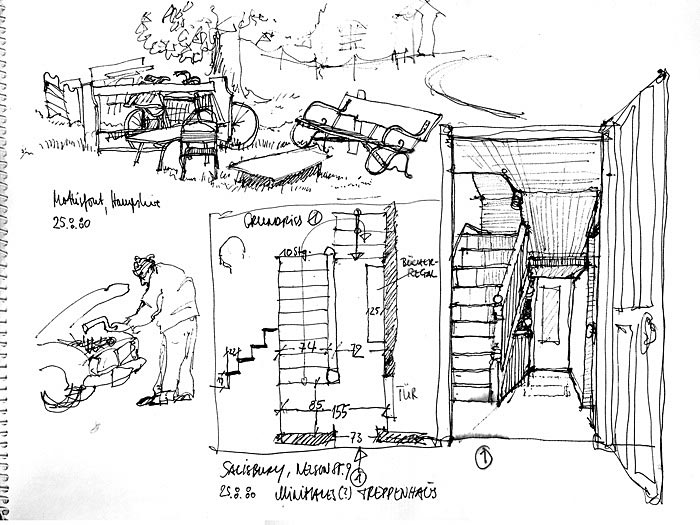 Mottisfont, Hampshire
25.8.80
GRUNDRISS ①
10 Stg.
BÜCHER-
REGAL
125
24
74
72
TÜR
85
155
73
SALISBURY, NELSON ST. 9
①
①
25.8.80 MINIMALES (?) TREPPENHAUS